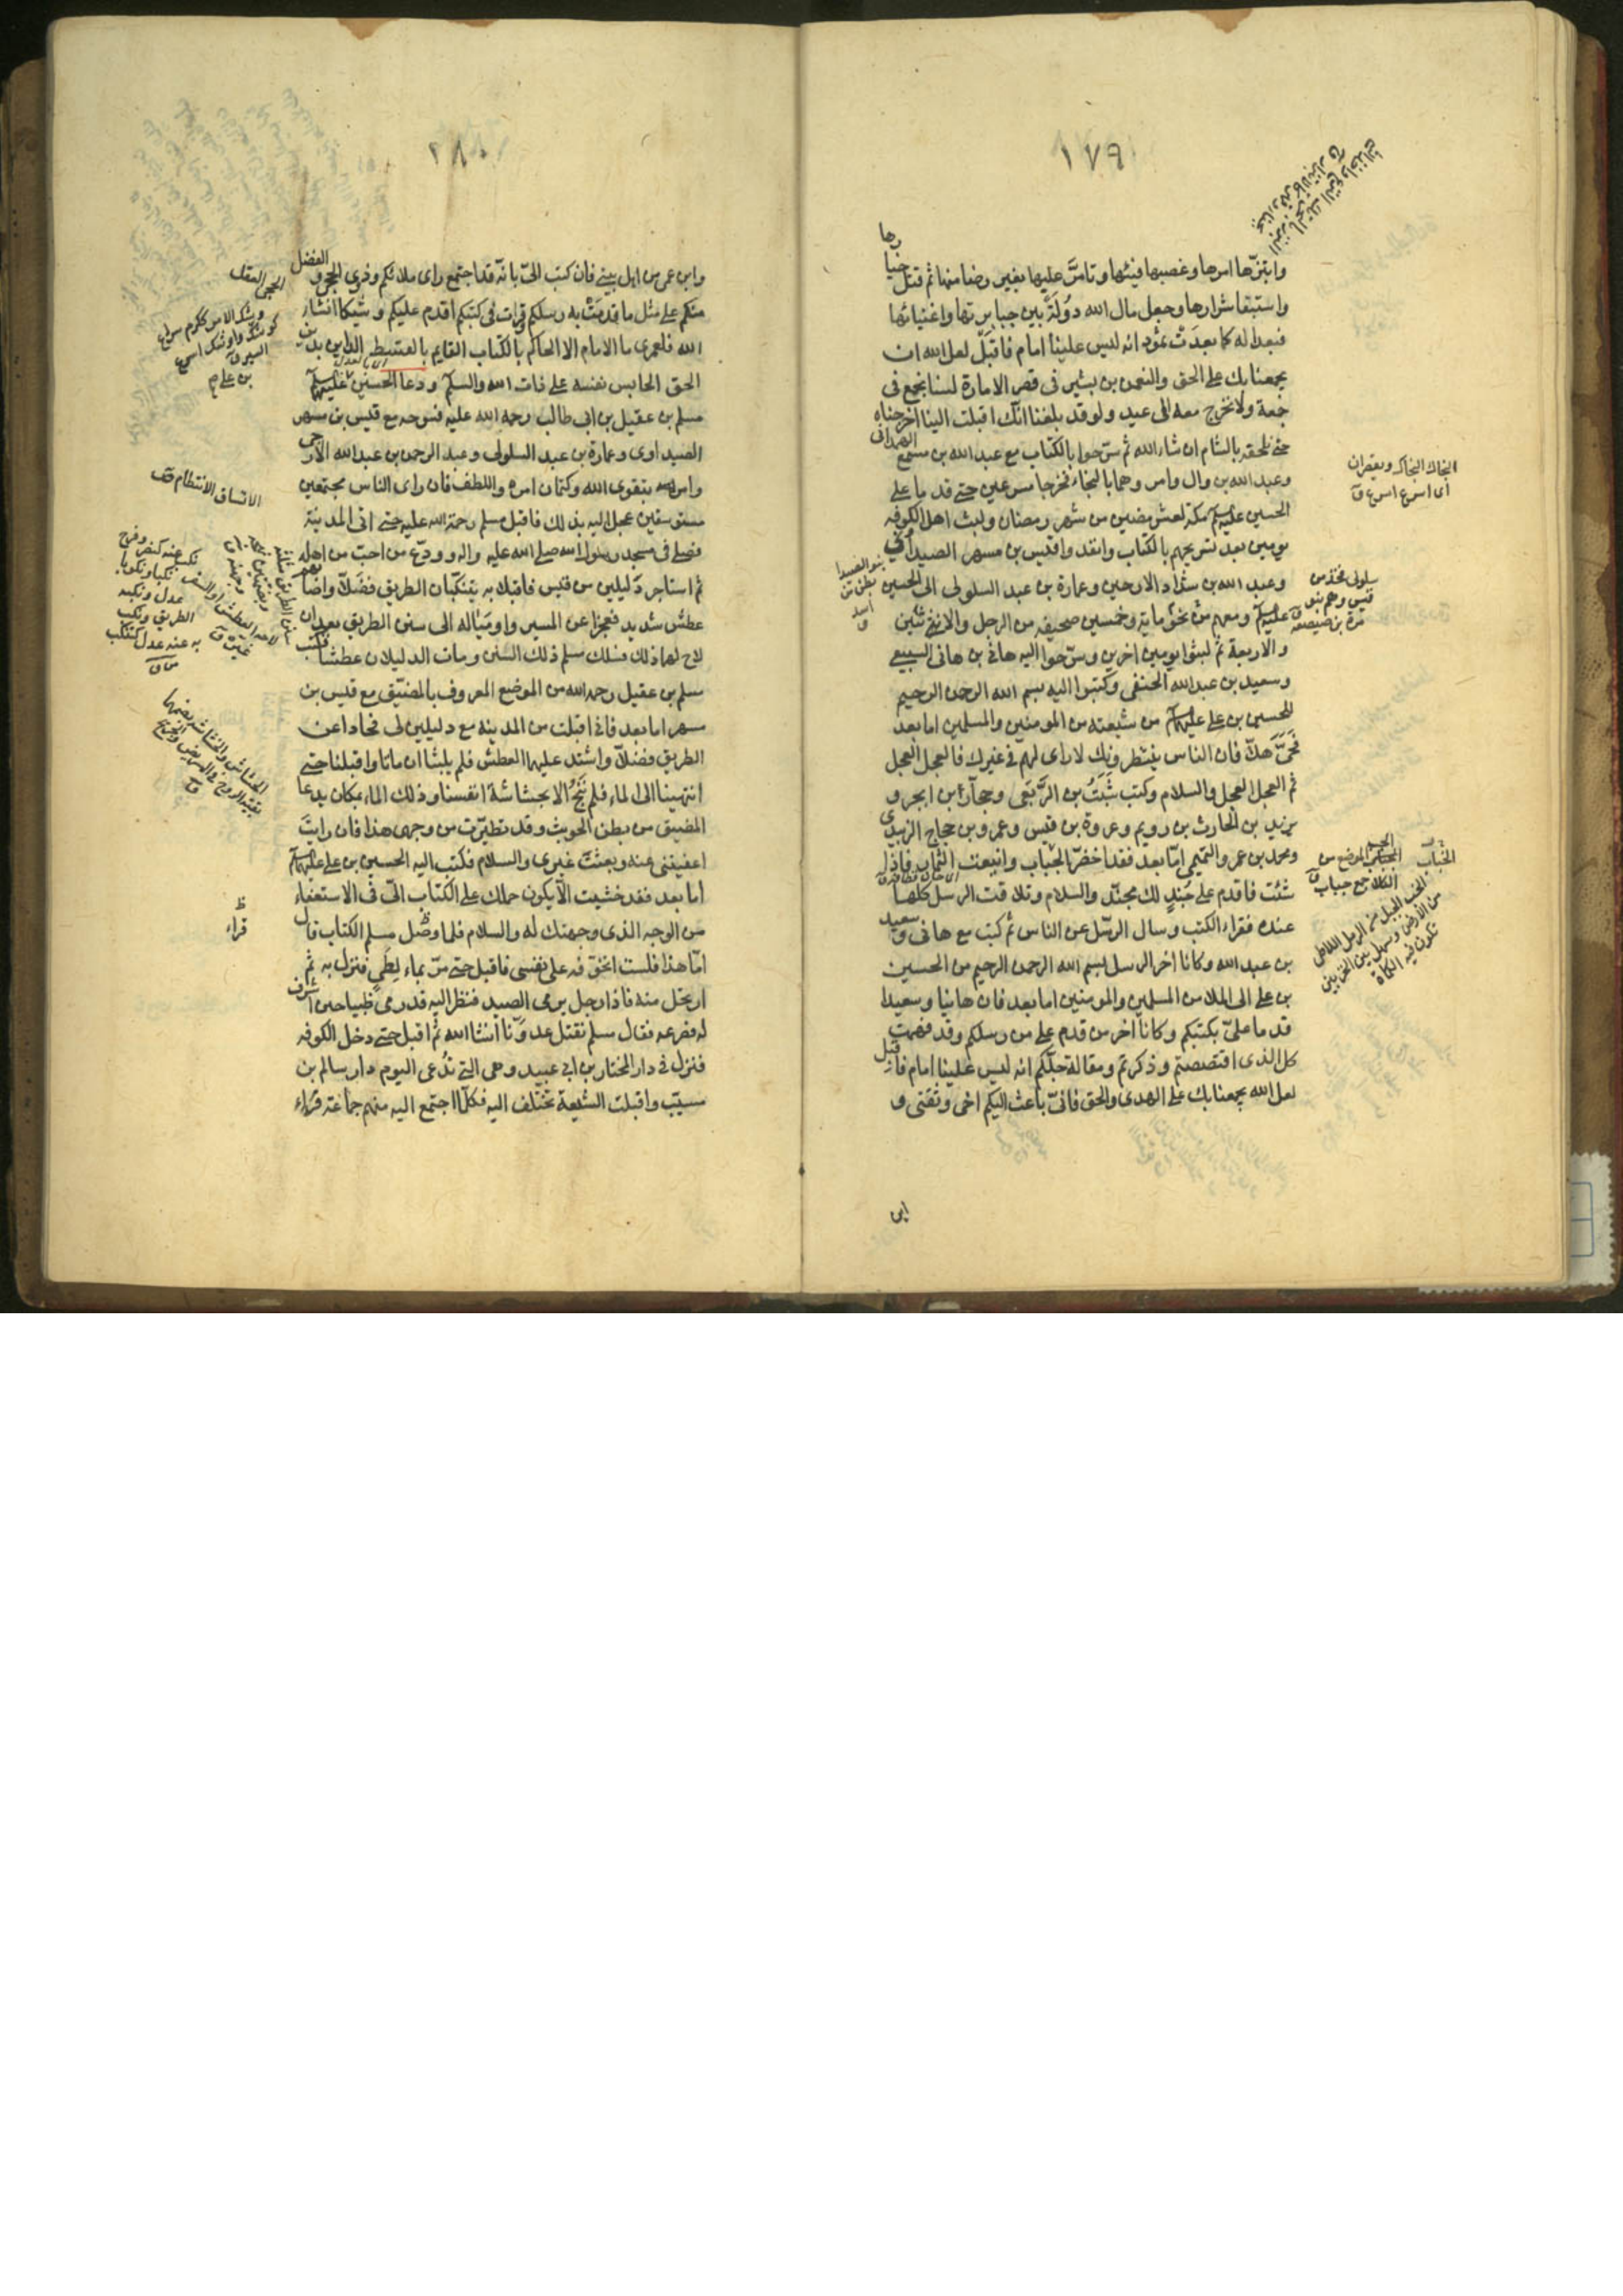 ١٧٩
وابتزّها امرها وغصبها فيئها وتأمّر عليها بغير رضا منها ثم قتل خيارها
واستبقا شرارها وجعل مال الله دُولَةً بين جبابرتها واغنيائها
فبعدا له كما بعدَت ثمود انه ليس علينا امام فاقبل لعل الله ان
يجمعنا بك على الحق والنعمن بن بشير فى قصر الامارة لسنا نجمع فى
جمعة ولا نخرج معه الى عيد ولو قد بلغنا انّك اقبلت الينا اخرجناه
حتى نلحقه بالشام ان شاء الله ثم سرّحوا بالكتاب مع عبد الله بن مسمع الهمدانى
وعبد الله بن وال وامروهما بالنجاء فخرجا مسرعين حتى قدما على
الحسين عليه السلم بمكة لعشر مضين من شهر رمضان ولبث اهل الكوفه
يومين بعد تسريحهم بالكتاب وانفدوا قيس بن مسهر الصيداوى
وعبد الله بن شداد الارحبى وعمارة بن عبد السلولى الى الحسين
عليه السلم ومعهم من نحو مايه وخمسين صحيفه من الرجل والاثنين
والاربعة ثم لبثوا يومين اخرين وسرّحوا اليه هانى بن هانى السبيعى
وسعيد بن عبد الله الحنفى وكتبوا اليه بسم الله الرحمن الرحيم
للحسين بن على عليهما السلم من شيعته من المومنين والمسلمين اما بعد
فحَىَّ هلاّ فان الناس ينتظرونك لا راى لهم فى غيرك فالعجل العجل
ثم العجل العجل والسلام وكتب شَبَثُ بن الرَّبَعى وحجّار بن ابجر و
يزيد بن الحارث بن رويم وعروة بن قيس وعمرو بن حجاج الزبيدى
ومحمد بن عمرو التميمى امّا بعد فقد اخضرّ الجناب واينعت الثمار فاذا
شئت فاقدم على جُندٍ لك مجنّد والسلام وتلاقت الرسل كلها
عنده فقراء الكتب وسال الرّسل عن الناس ثم كتب مع هانى وسعيد
بن عبد الله وكانا اخر الرسل بسم الله الرحمن الرحيم من الحسين
بن على الى الملا من المسلمين والمومنين اما بعد فان هانيا وسعيدا
قدما علىّ بكتبكم وكانا اخر من قدم على من رسلكم وقد فهمت
كل الذى اقتصصتم وذكرتم ومقالة جلّكم انه ليس علينا امام فاقبل
لعل الله يجمعنا بك على الهدى والحق فانّى باعث اليكم اخى وثقتى و
ابن
بنو الصيدا
بطن من
اسد
سلولى فخذ من
قيس وهم بنو
مرة بن صعصعه
٢٨٠
وابن عمى من اهل بيتى فان كتب الىّ بانّه قد اجتمع راى ملائكم وذوى الحجى والفضل
منكم على مثل ما قدمَتْ به رسلكم وقرات فى كتبكم اقدم عليكم وشيكا انشاء
الله فلعمرى ما الامام الا الحاكم بالكتاب القايم بالقسط الداين بدين
الحق الحابس نفسه على ذات الله والسلم ودعا الحسين عليه السلم
مسلم بن عقيل بن ابى طالب رحمه الله عليه فسرحه مع قيس بن مسهر
الصيداوى وعمارة بن عبد السلولى وعبد الرحمن بن عبد الله الارحبى
وامره بتقوى الله وكتمان امره واللطف فان راى الناس مجتمعين
مستوسقين عجل اليه بذلك فاقبل مسلم رحمة الله عليه حتى اتى المدينة
فصلى فى مسجد رسول الله صلى الله عليه واله وودّع من احبّ من اهله
ثم استاجر دليلين من قيس فاقبلا به يتنكّبان الطريق فضلاّ واصابهم
عطش شديد فعجزا عن المسير واومَيَا له الى سنن الطريق بعد ان
لاح لهما ذلك فسلك مسلم ذلك السنن ومات الدليلان عطشا فكتب
مسلم بن عقيل رحمه الله من الموضع المعروف بالمضيّق مع قيس بن
مسهر اما بعد فانى اقبلت من المدينه مع دليلين لى فحادا عن
الطريق فضلاّ واشتد عليهما العطش فلم يلبثا ان ماتا واقبلنا حتى
انتهينا الى الماء فلم نَنْجُ الا بحشاشة انفسنا وذلك الماء بمكان يدعا
المضيق من بطن الخبيث وقد تطيّرت من وجهى هذا فان رايتَ
اعفيتنى عنه وبعثتَ غيرى والسلام فكتب اليه الحسين بن على عليهما السلم
اما بعد فقد خشيت الّا يكون حملك على الكتاب الىّ فى الاستعفاء
من الوجه الذى وجهتك له والسلام فلما وصل مسلم الكتاب قال
امّا هذا فلست اتخوّفه على نفسى فاقبل حتى مرّ بماء لطَىٍّ فنزل به ثم
ارتحل منه فاذا رجل يرمى الصيد فنظر اليه قد رمى ظبيا حين اشرف
له فصرعه فقال مسلم نقتل عدوّنا انشا الله ثم اقبل حتى دخل الكوفه
فنزل فى دار المختار بن ابى عبيد وهى التى تُدعى اليوم دار سالم بن
مسيّب واقبلت الشيعة تختلف اليه فكلّما اجتمع اليه منهم جماعة قراء
الحجى العقل
الاتساق الانتظام
ظ
قراء